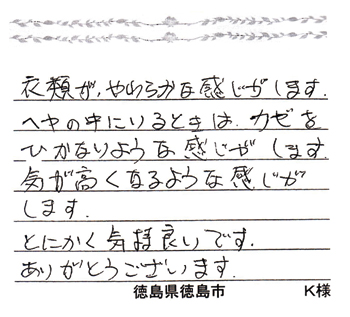 衣類が、やわらかな感じがします。
ヘヤの中にいるときは、カゼを
ひかなりような感じが します。
気が高くなるような感じが
します。
とにかく気持良いです。
ありがとうございます。
徳島県徳島市 K様